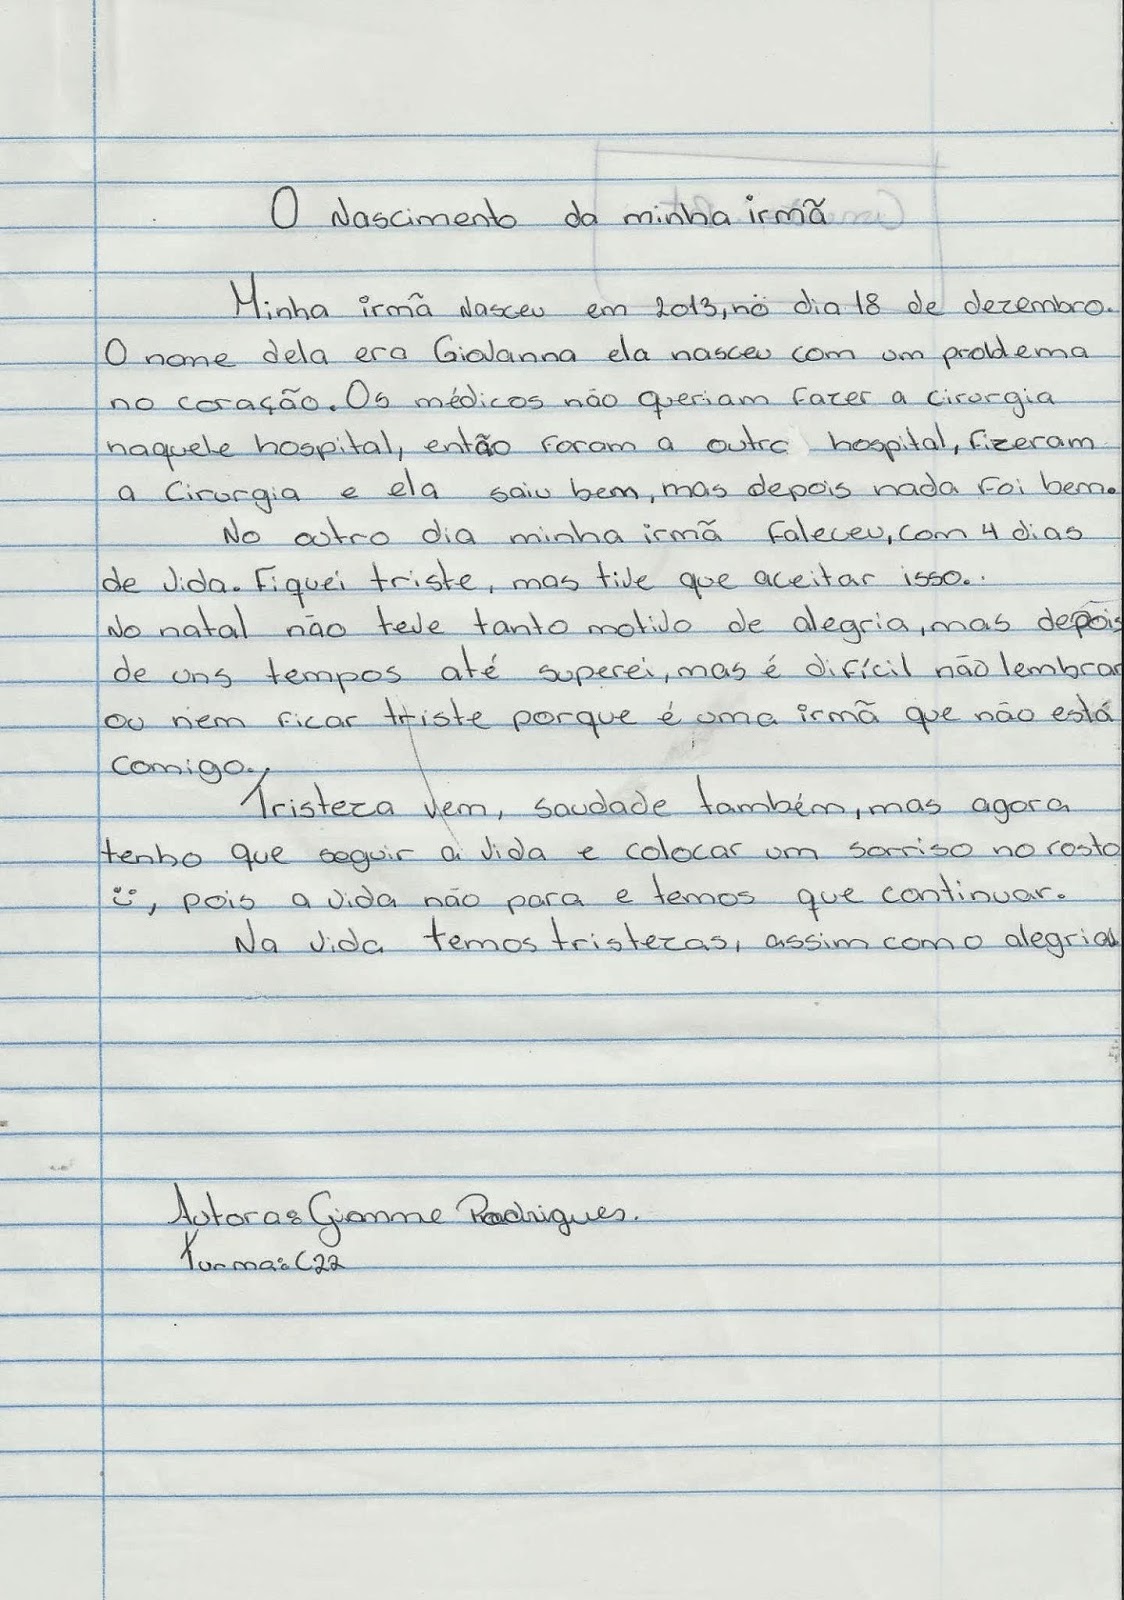 O Nascimento da minha irmã
Minha irmã Nasceu em 2013, no dia 18 de dezembro.
O nome dela era Giovanna ela nasceu com um problema
no coração. Os médicos não queriam fazer a cirurgia
naquele hospital, então foram a outro hospital, fizeram
a cirurgia e ela saiu bem, mas depois nada foi bem.
No outro dia minha irmã faleceu, com 4 dias
de vida. Fiquei triste, mas tive que aceitar isso.
No natal não teve tanto motivo de alegria, mas depois
de uns tempos até superei, mas é difícil não lembrar
ou nem ficar triste porque é uma irmã que não está
comigo.
Tristeza vem, saudade também, mas agora
tenho que seguir a vida e colocar um sorriso no rosto
Ü, pois a vida não para e temos que continuar.
Na vida temos tristezas, assim como alegrias
Autora: Gianne Rodrigues.
Turma: C22